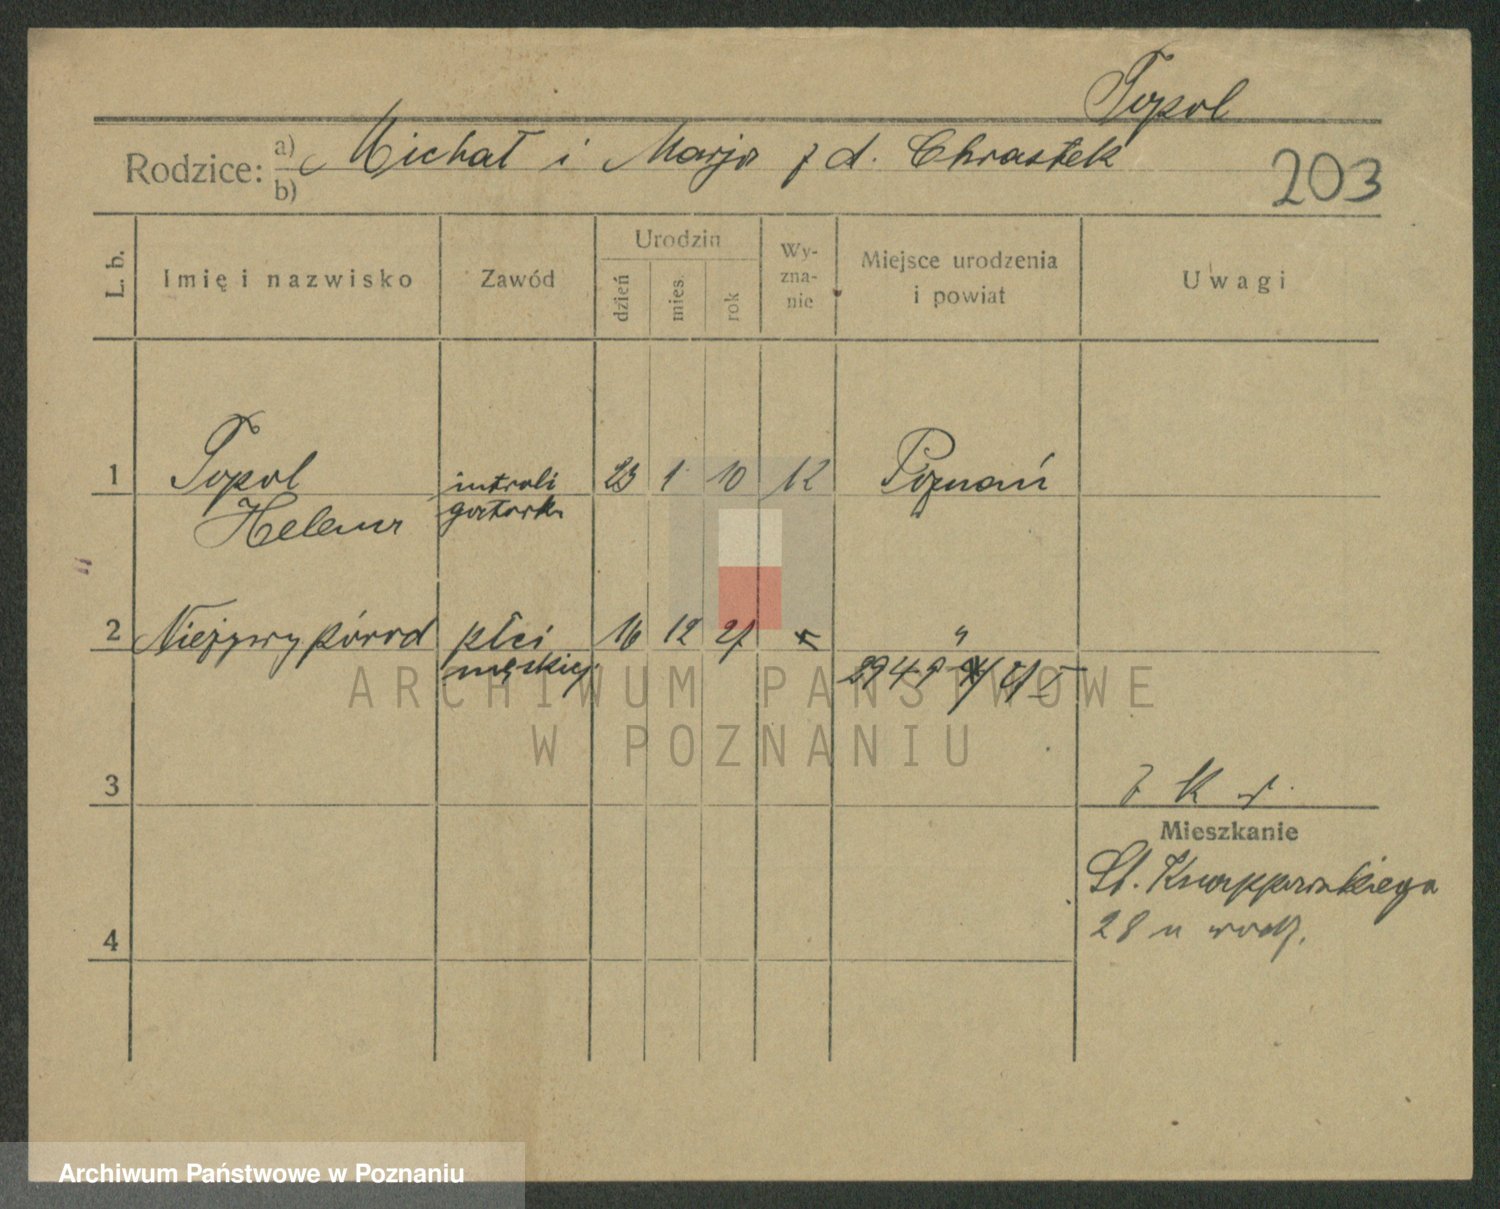 Topol
Rodzice: a) b) Michał i Marja z d. Chrastek
203
L. b.
Imię i nazwisko
Zawód
Urodzin
dzień
mies.
rok
Wy-
zna-
nie
Miejsce urodzenia
i powiat
Uwagi
1 Topol introli 23 1 10 K Poznań
Helena gatorka
2 Nieżywy poród płci 16 12 27 "
męskiej 2949
3
Mieszkanie
St. Knappowskiego
28 u rodz.
4
ARCHIWUM PAŃSTWOWE
W POZNANIU
Archiwum Państwowe w Poznaniu